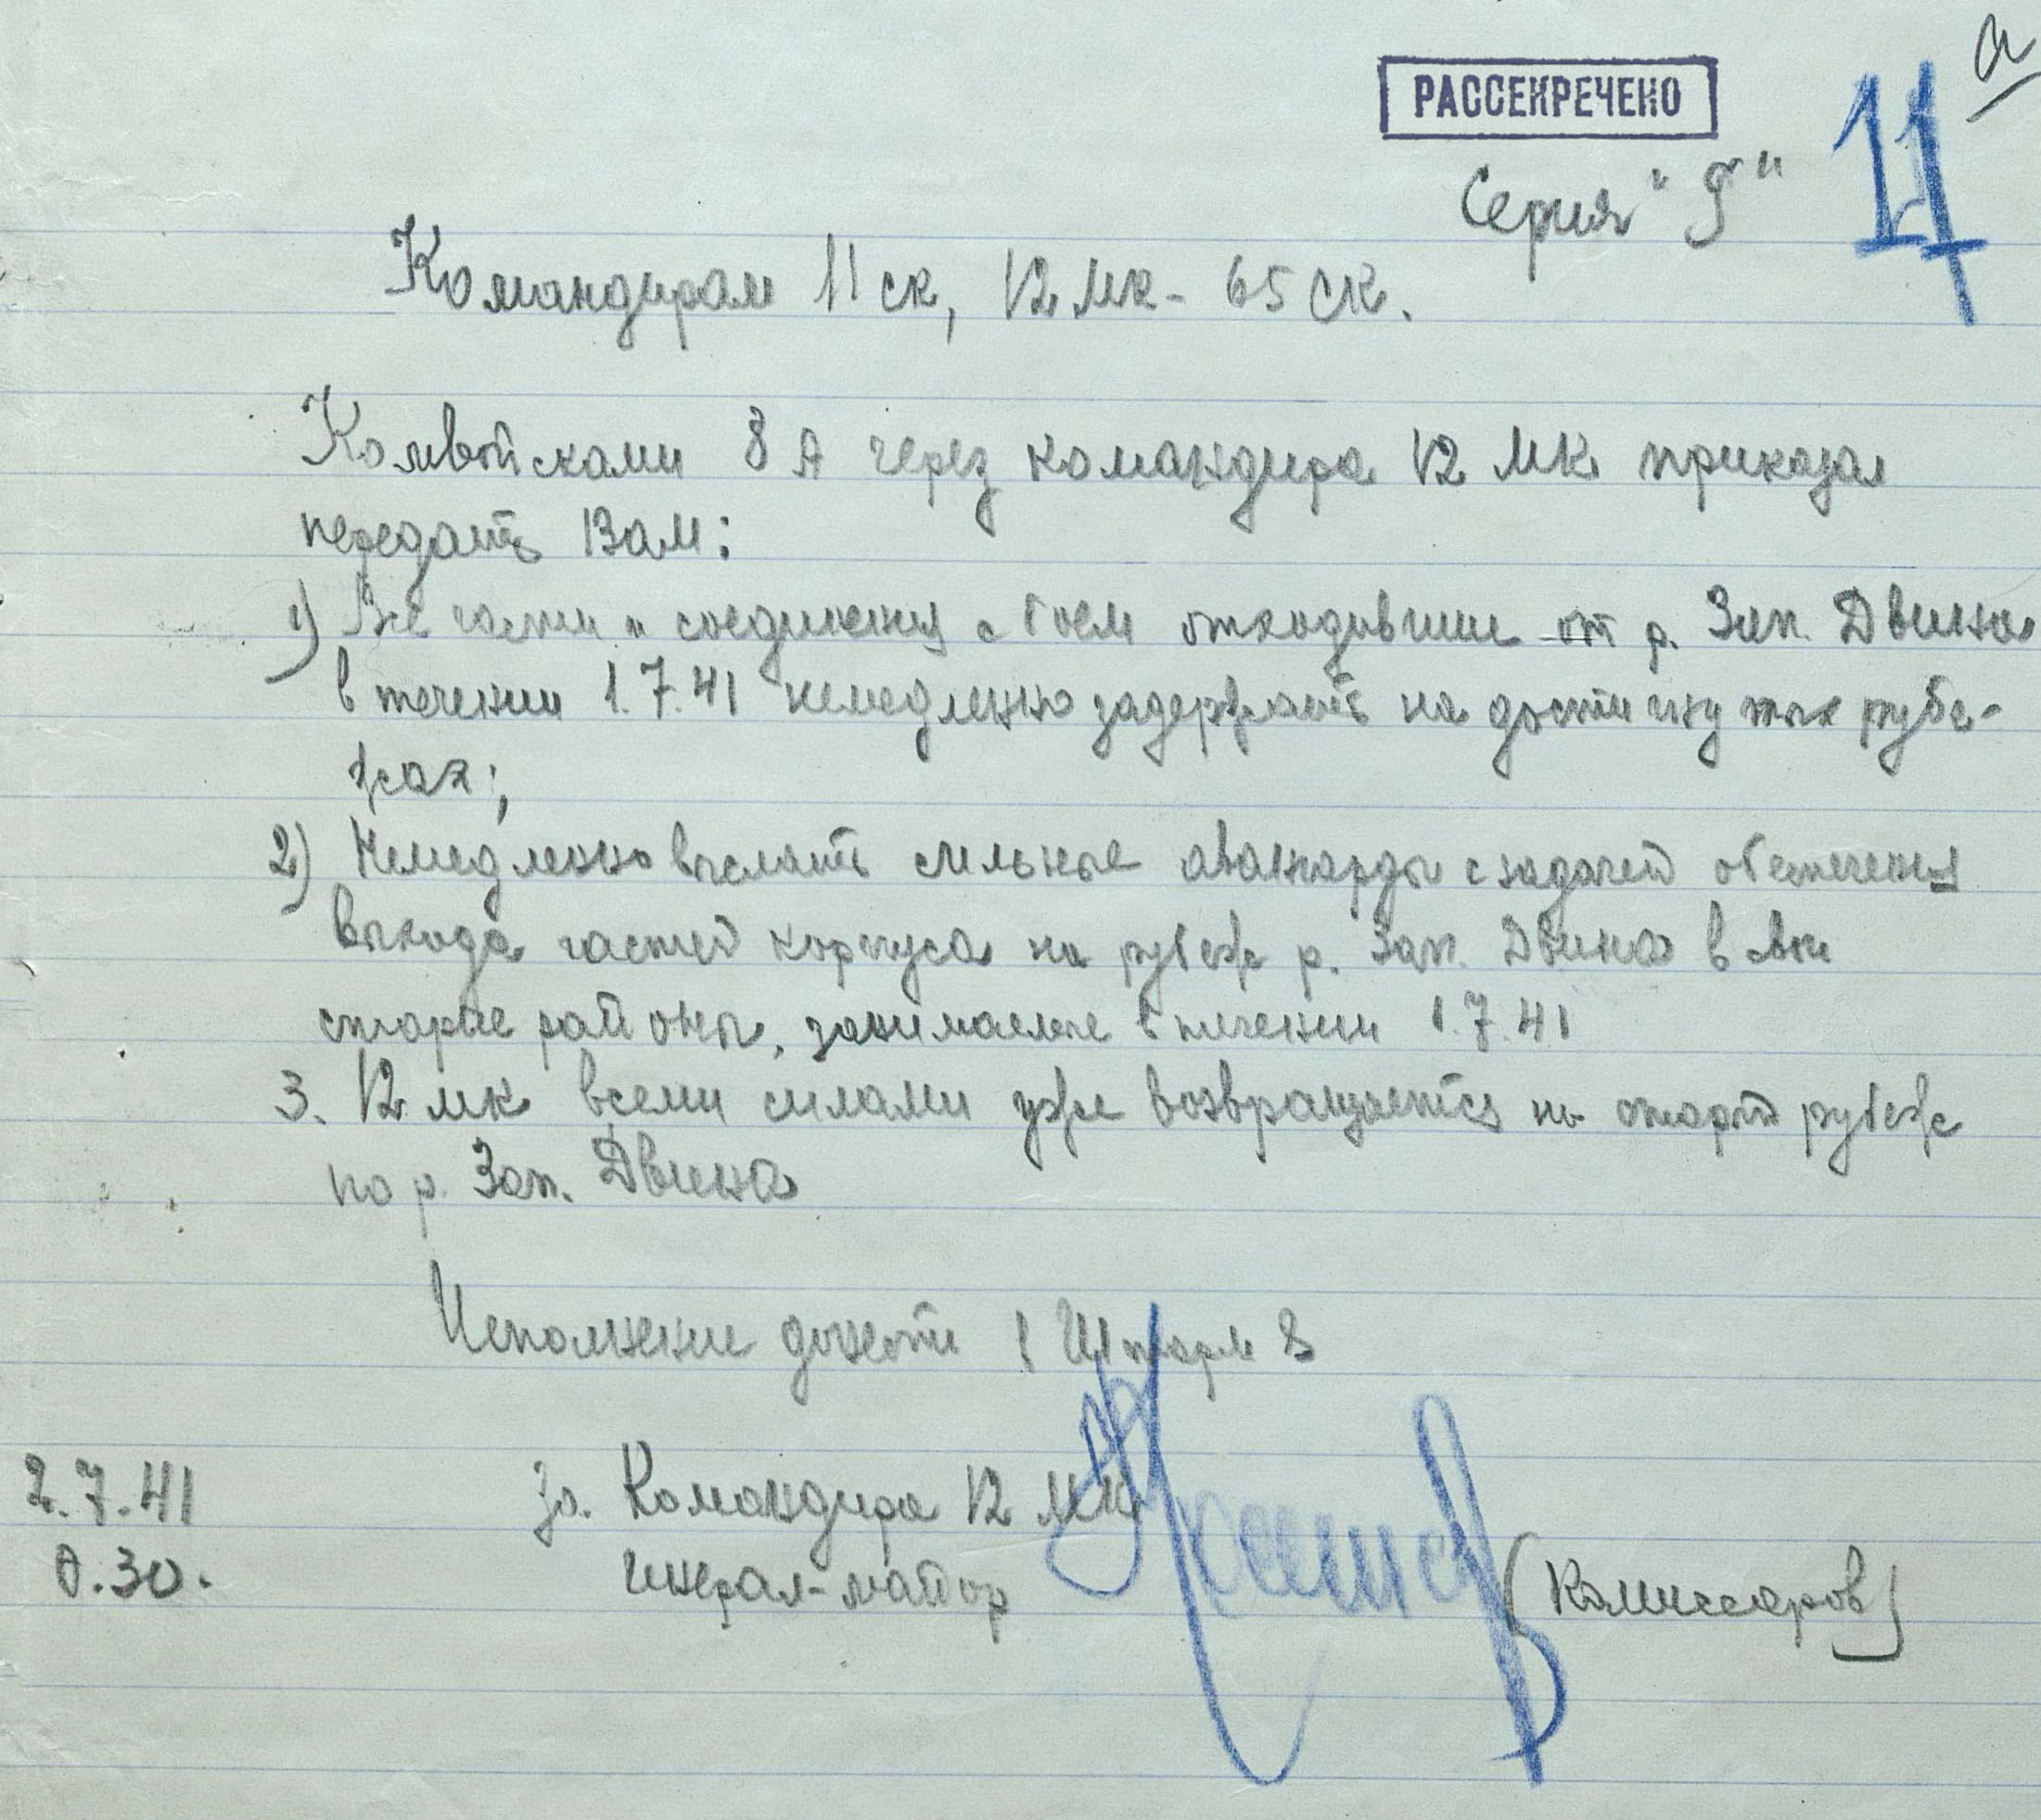 РАССЕКРЕЧЕНО
Серия "Г"
11
Командирам 11 ск, 12 мк - 65 ск.
Комвойсками 8 А через командира 12 МК приказал
передать Вам:
1) Все части и соединения с боем отходившие от р. Зап. Двина
в течении 1.7.41 немедленно задержать на достигнутых рубе-
жах;
2) Немедленно выслать сильные авангарды с задачей обеспечения
выхода частей корпуса на рубеж р. Зап. Двина в свои
старые районы, занимаемые в течении 1.7.41
3. 12 мк всеми силами уже возвращается на старый рубеж
по р. Зап. Двина
Исполнение донести в Штарм 8
2.7.41
0.30.
За. Командира 12 МК
генерал-майор
(Комиссаров)